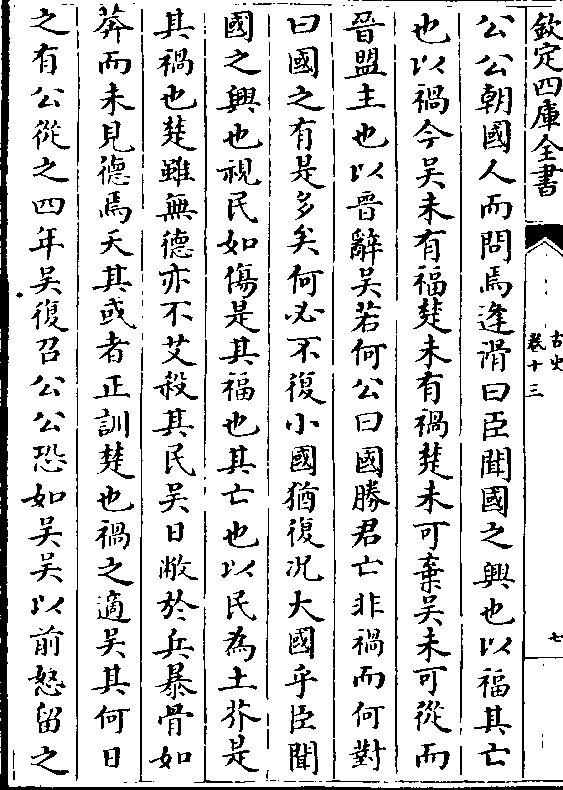 欽定四庫全書
古史
卷十三
七
公公朝國人而問焉逢滑曰臣聞國之興也以福其亡
也以禍今吳未有福楚未有禍楚未可棄吳未可從而
晉盟主也以晉辭吳若何公曰國勝君亡非禍而何對
曰國之有是多矣何必不復小國猶復况大國乎臣聞
國之興也視民如傷是其福也其亡也以民為土芥是
其禍也楚雖無德亦不艾殺其民吳日敝於兵暴骨如
莽而未見德焉天其或者正訓楚也禍之適吳其何日
之有公從之四年吳復召公公恐如吳吳以前怒留之